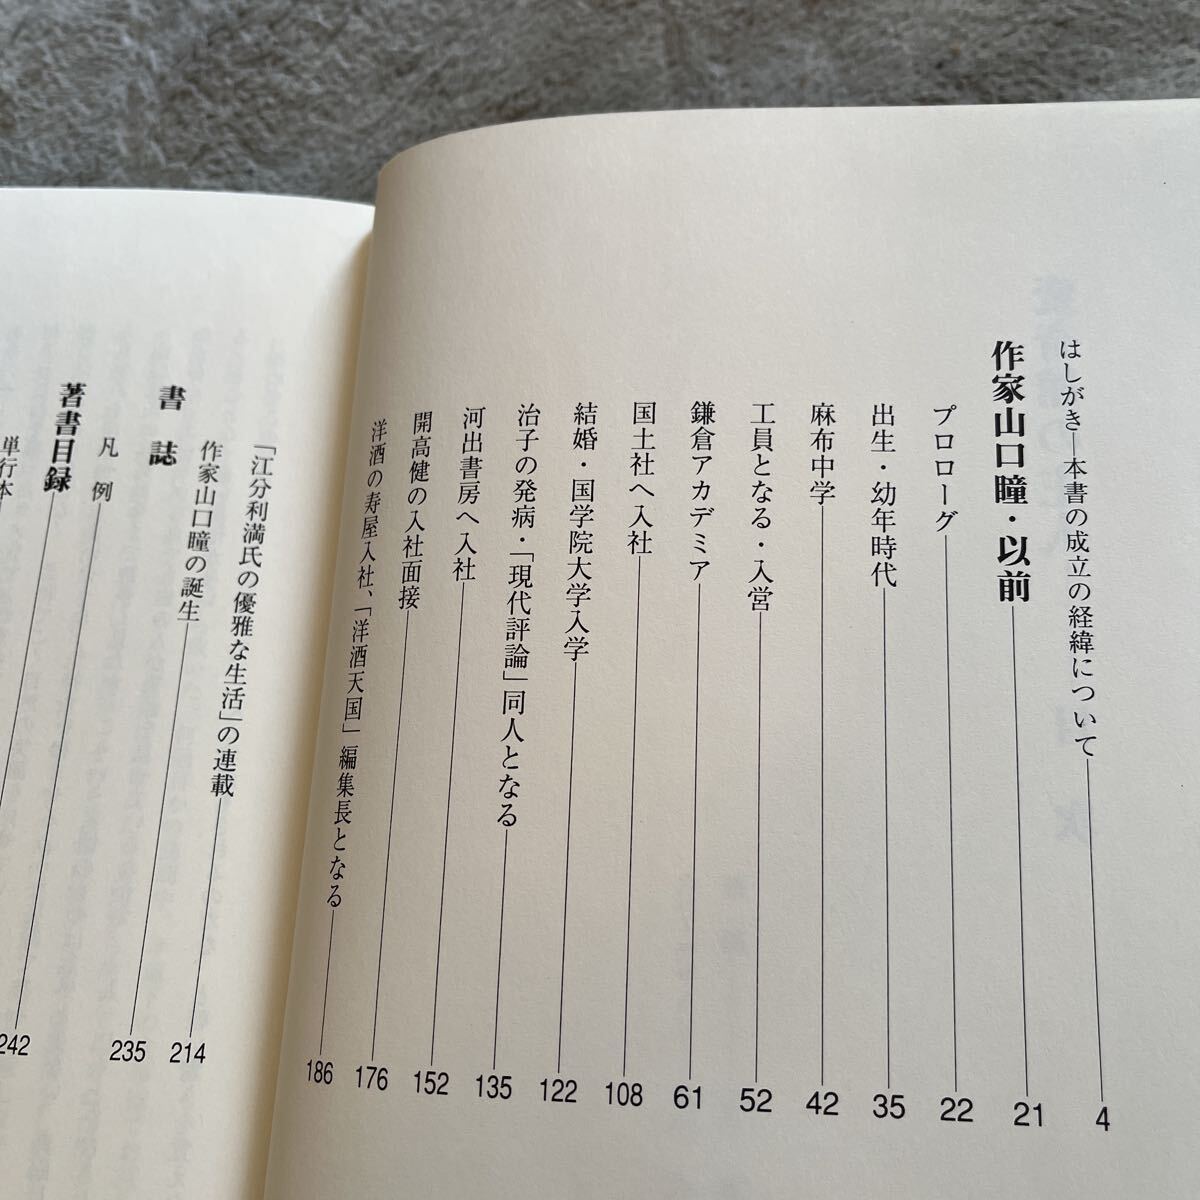 はしがき―本書の成立の経緯について 4
作家山口瞳・以前 21
プロローグ 22
出生・幼年時代 35
麻布中学 42
工員となる・入営 52
鎌倉アカデミア 61
国土社へ入社 108
結婚・国学院大学入学 122
治子の発病・「現代評論」同人となる 135
河出書房へ入社 152
開高健の入社面接 176
洋酒の寿屋入社、「洋酒天国」編集長となる 186
「江分利満氏の優雅な生活」の連載 214
作家山口瞳の誕生 235
書誌
凡例 242
著書目録
単行本